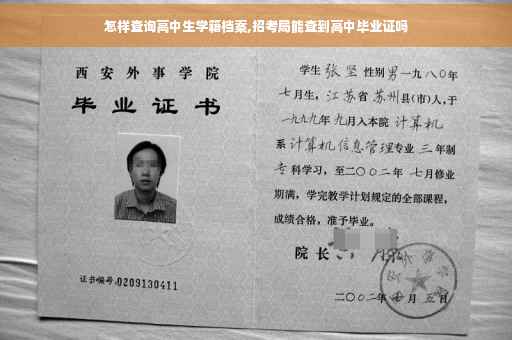 怎样查询高中生学籍档案,招考局能查到高中毕业证吗
西安外事学院
毕业证书
证书编号:0209130411
学生 张坚 性别 男 一九八〇年
七月生，江苏省 苏州县(市)人,于
一九九九年 九月入本院 计算机
系 计算机信息管理专业 三 年制
专 科学习，至二〇〇二年 七月修业
期满，学完教学计划规定的全部课程，
成绩合格，准予毕业。
院长
二〇〇二年 月 五日